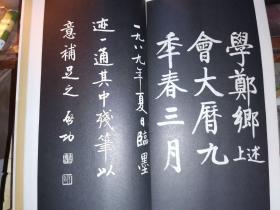 學鄭鄉上述
會大曆九
季春三月
一九八九年夏日臨墨
迹一通其中殘筆以
意補足之 啟功